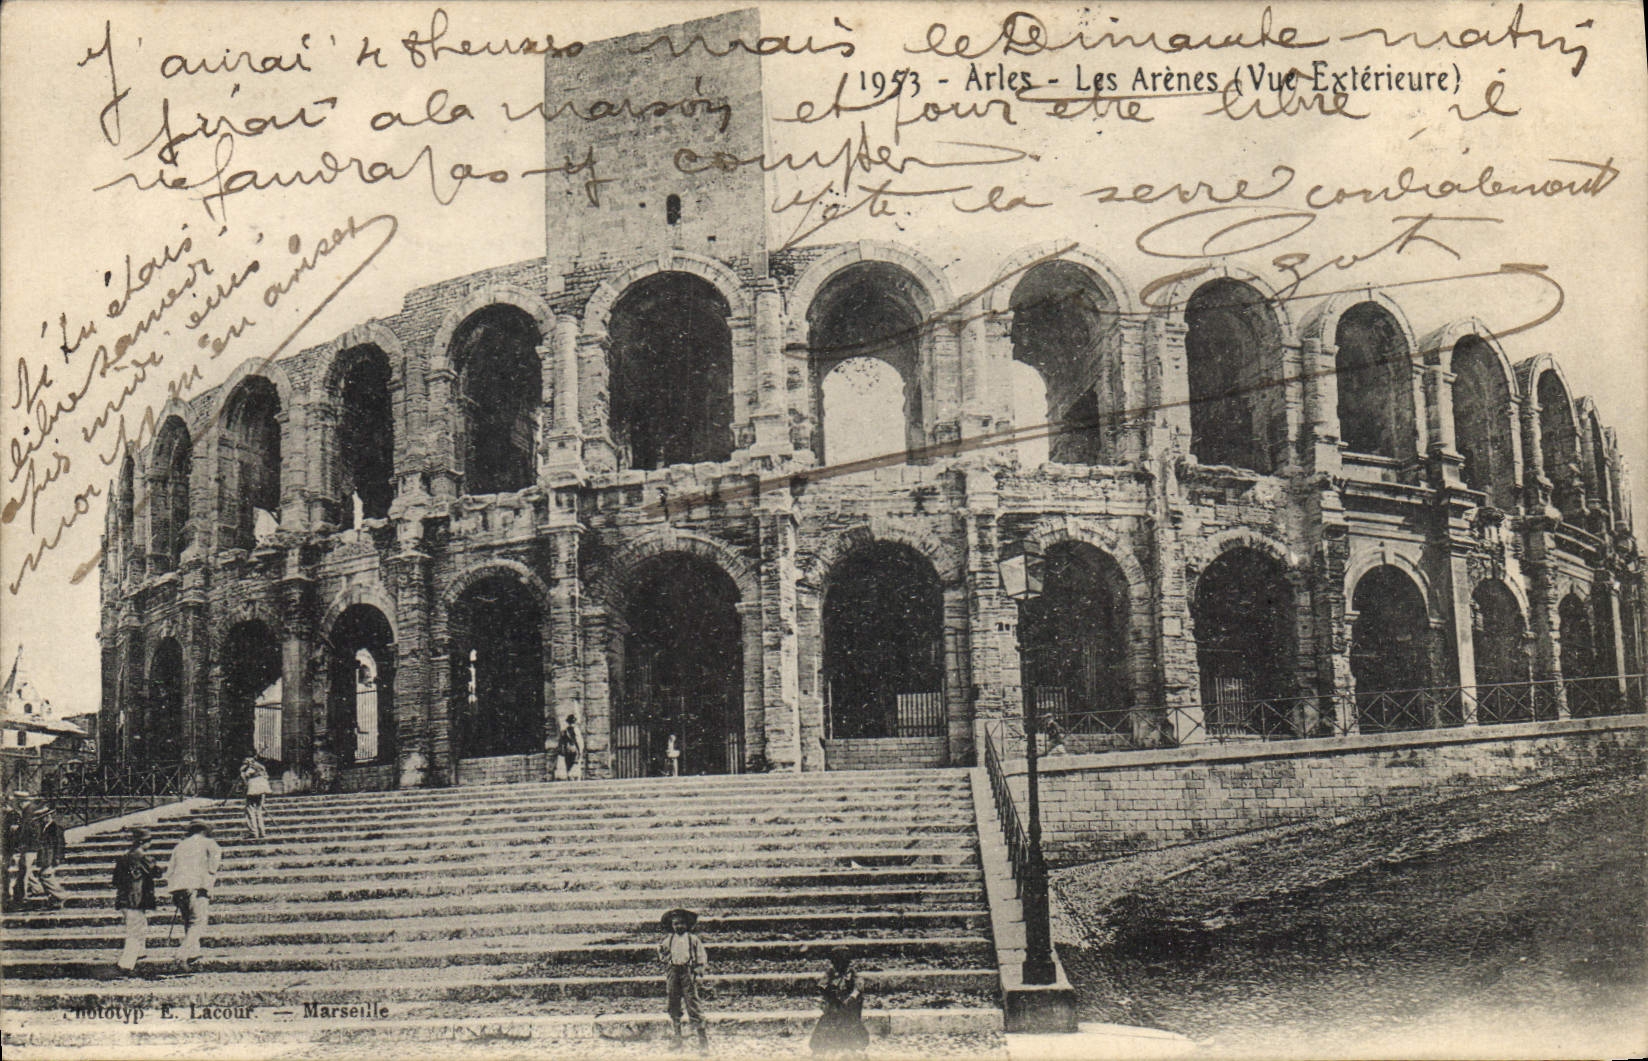 J'aurai 48 heures mais le Dimanche matin
1953 - Arles - Les Arènes (Vue Extérieure)
j'irai a la maison et pour etre libre il
ne faudra pas y compter
Je te la serre cordialement
Si tu étais
libre samedi
après midi écris
moi pour m'en aviser
Phototyp E. Lacour. — Marseille